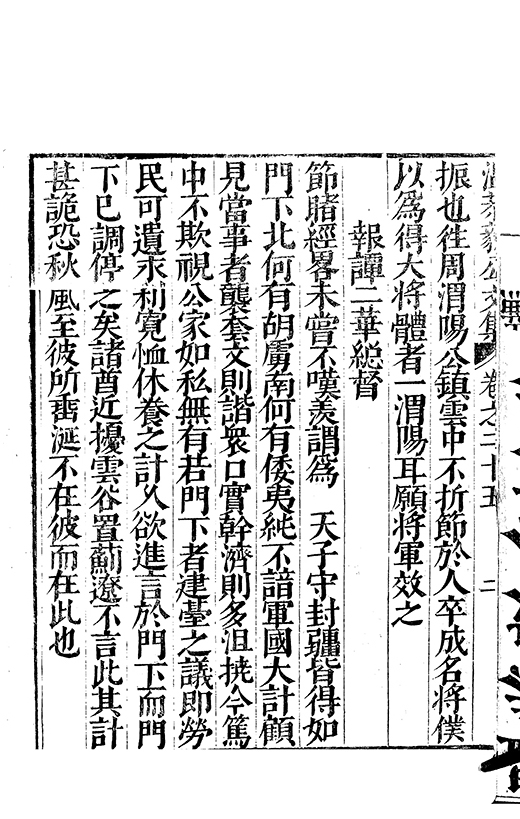 溫恭毅公文集 卷之二十五 二
振也往周渭陽公鎮雲中不折節於人卒成名將僕
以為得大將體者一渭陽耳願將軍效之
報譚二華緫督
節賭經畧未嘗不嘆羨謂為 天子守封疆皆得如
門下北何有胡虜南何有倭夷純不諳軍國大計顧
見當事者襲套文則諧衆口實幹濟則多沮撓今篤
中不欺視公家如私無有若門下者建臺之議即勞
民可遺永利寬恤休養之計久欲進言於門下而門
下已調停之矣諸酋近擾雲谷置薊遼不言此其計
甚詭恐秋風至彼所垂涎不在彼而在此也